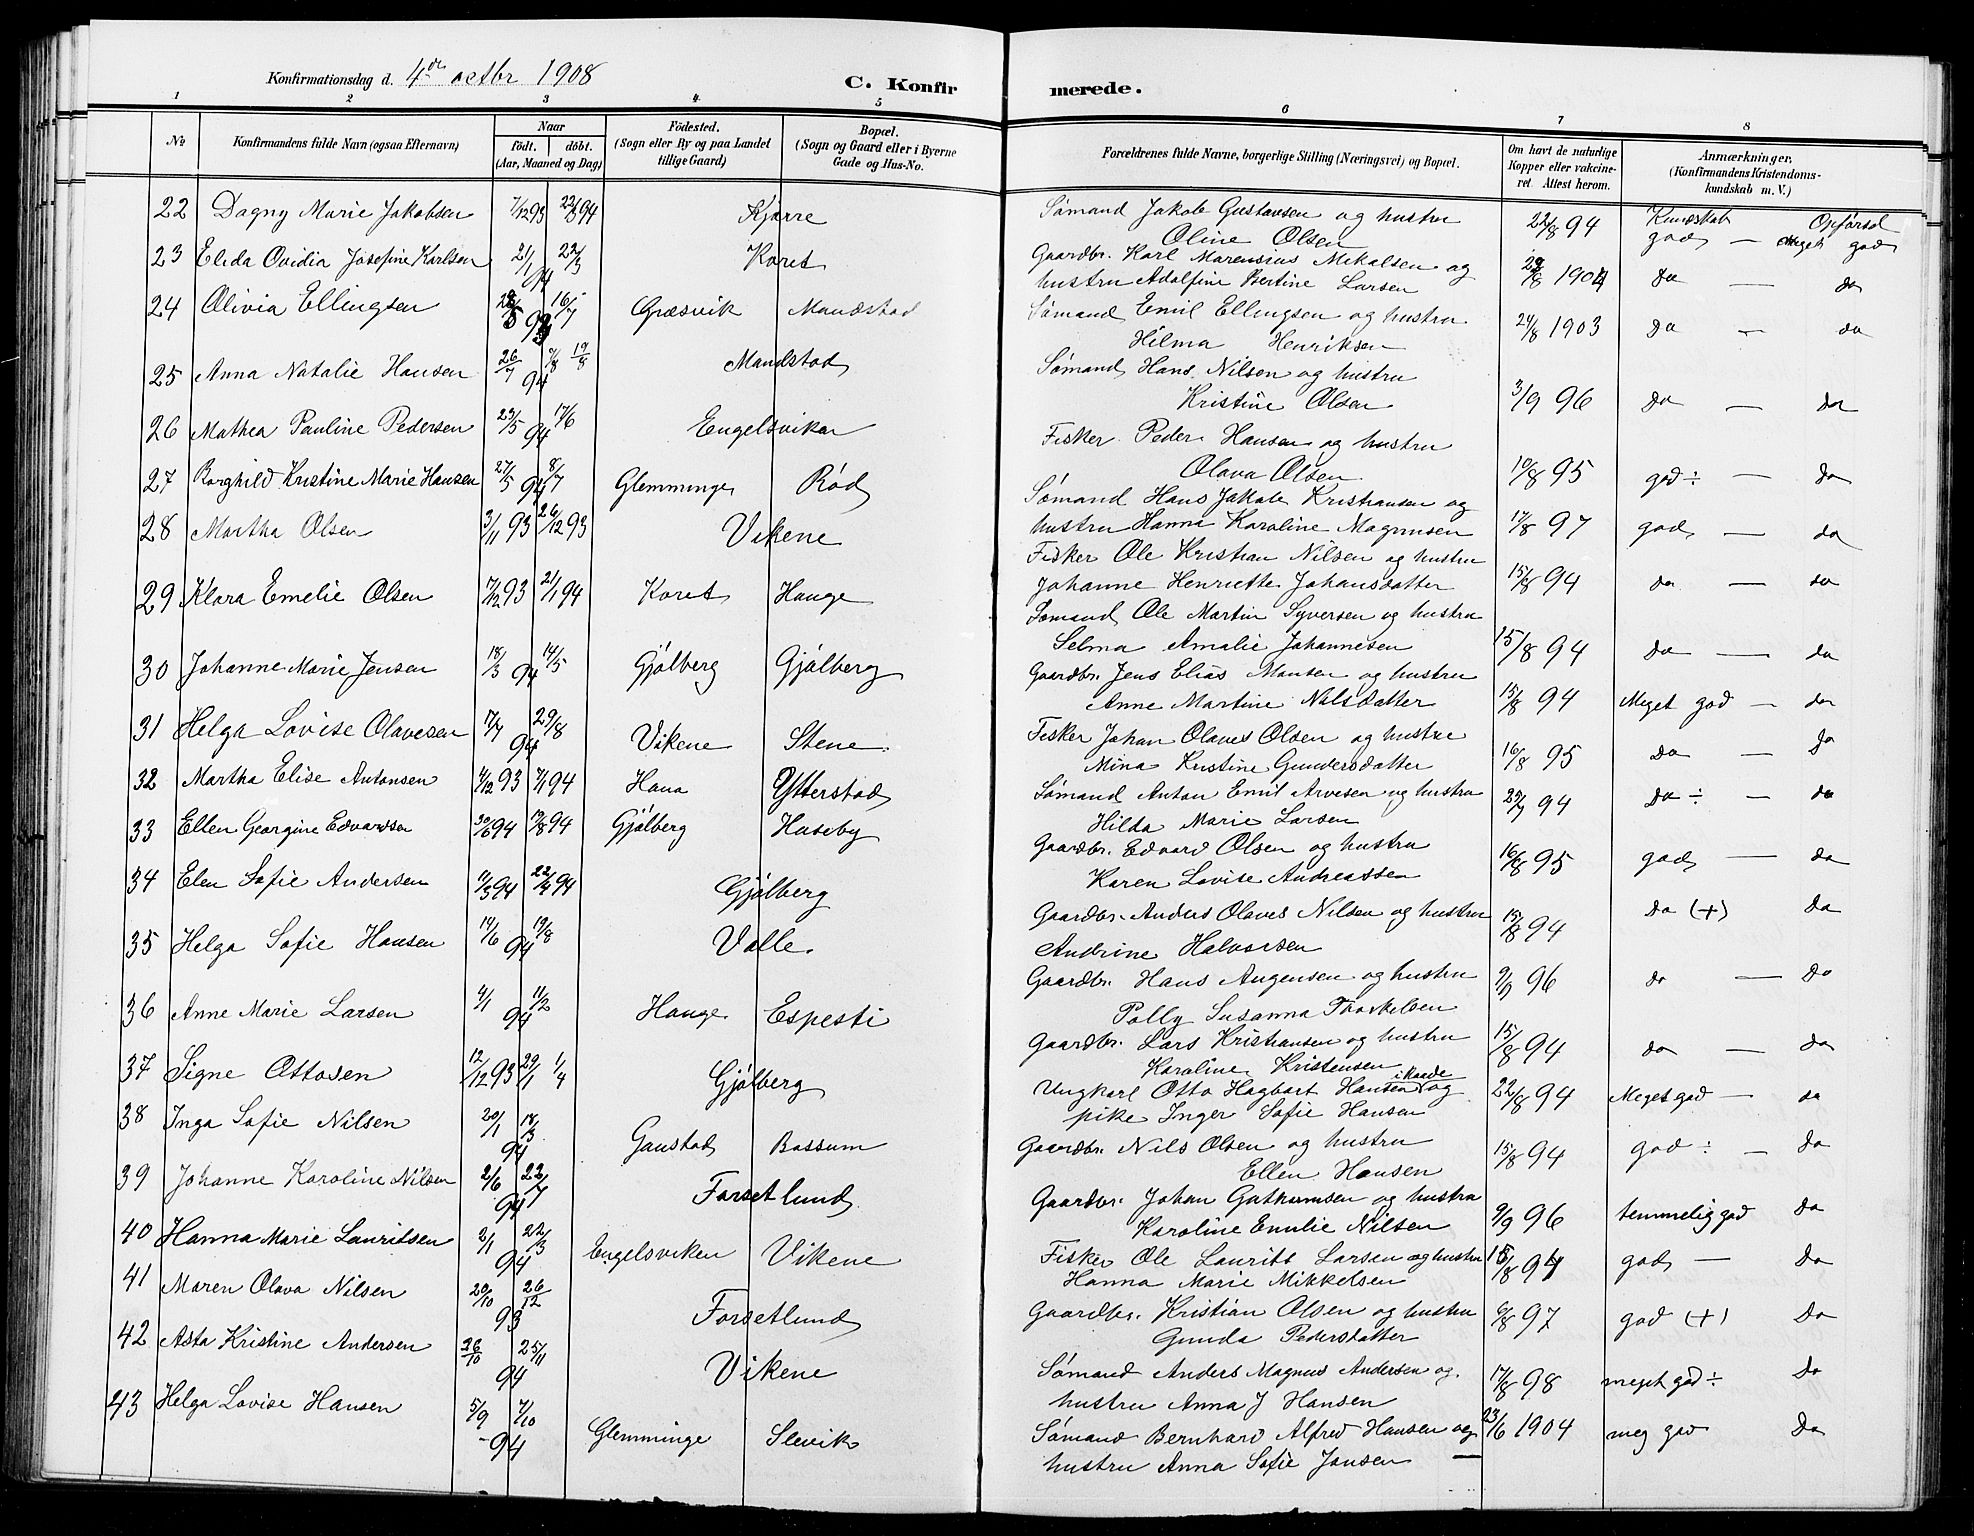 Konfirmationsdag d. 4de octbr 1908 C. Konfirmerede.
1 2 3 4 5 6 7 8
No Konfirmandens fulde Navn (ogsaa Efternavn) Naar født. døbt. (Aar, Maaned og Dag) Fødested. (Sogn eller By og paa Landet tillige Gaard) Bopæl. (Sogn og Gaard eller i Byerne Gade og Hus-No. Forældrenes fulde Navne, borgerlige Stilling (Næringsvei) og Bopæl. Om havt de naturlige Kopper eller vakcineret. Attest herom. Anmærkninger. (Konfirmandens Kristendomskundskab m. V.)
Kundskab Opførsel
22 Dagny Marie Jakobsen 7/12 93 22/8 94 Kjærre Sømand Jakob Gustavsen og hustru 22/8 94 god — Meget god
Oline Olsen
23 Elida Ovidia Josefine Karlsen 21/1 22/3 94 Koret Gaardbr. Karl Marensius Mikalsen og 22/8 1904 Do — do
hustru Adolfine Bertine Larsen
24 Olivia Ellingsen 28/5 16/7 93 Græsvik Mandstad Sømand Emil Ellingsen og hustru 24/8 1903 Do — do
Hilma Henriksen
25 Anna Natalie Hansen 26/7 19/8 94 Mandstad Sømand Hans Nilsen og hustru 3/9 96 Do — Do
Kristine Olsen
26 Mathea Pauline Pedersen 29/5 17/6 94 Engelsviken Fisker Peder Hansen og hustru 10/8 95 god ÷ — Do
Olava Olsen
27 Borghild Kristine Marie Hansen 27/5 8/7 94 Glemminge Rød Sømand Hans Jakob Kristiansen og 17/8 97 god — do
hustru Hanna Karoline Magnusen
28 Martha Olsen 3/11 93 26/12 93 Vikene Fisker Ole Kristian Nilsen og hustru 15/8 94 do — do
Johanne Henriette Johansdatter
29 Klara Emelie Olsen 17/12 93 21/1 94 Koret Hauge Sømand Ole Martin Syversen og hustru 15/8 94 Do — do
Selma Amalie Johannesen
30 Johanne Marie Jensen 18/3 14/5 94 Gjølberg Gjølberg Gaardbr. Jens Elias Monsen og hustru 15/8 94 Meget god — do
Anne Martine Nilsdatter
31 Helga Lovise Olavesen 17/7 29/8 94 Vikene Stene Fisker Johan Olaves Olsen og hustru 16/8 95 Do — Do
Mina Kristine Gundersdatter
32 Martha Elise Antonsen 4/12 93 7/1 94 Hana Ytterstad Sømand Anton Emil Arvesen og hustru 29/7 94 Do ÷ — do
Hilda Marie Larsen
33 Ellen Georgine Edvardsen 30/6 94 19/8 94 Gjølberg Huseby Gaardbr. Edvard Olsen og hustru 16/8 95 god — do
Karen Lovise Andreassen
34 Elen Sofie Andersen 11/3 94 22/4 94 Gjølberg Gaardbr. Anders Olaves Nilsen og hustru 15/8 94 Do (+) Do
Andrine Halvorsen
35 Helga Sofie Hansen 14/6 19/8 94 Valle. Gaardbr. Hans Augensen og hustru 9/9 96 do — Do
Polly Susanna Thorkelsen
36 Anne Marie Larsen 4/1 11/2 94 Hauge Espesti Gaardbr. Lars Kristiansen og hustru 15/8 94 do — do
Karoline Kristensen
37 Signe Ottosen 12/12 93 29/1 1/4 Gjølberg Ungkarl Otto Hagbart Hansen i Raade og 22/8 94 Meget god — do
pike Inger Sofie Hansen
38 Inga Sofie Nilsen 20/1 18/3 94 Gaustad Bossum Gaardbr. Nils Olsen og hustru 15/8 94 god ÷ — Do
Ellen Hansen
39 Johanne Karoline Nilsen 2/6 22/7 94 Forsetlund Gaardbr. Johan Gutkumsen og hustru 9/9 96 temmelig god Do
Karoline Emilie Nilsen
40 Hanna Marie Lauritsen 2/1 22/3 94 Engelsviken Vikene Fisker Ole Lauritz Larsen og hustru 15/8 94 god — Do
Hanna Marie Mikkelsen
41 Maren Olava Nilsen 20/10 26/12 93 Forsetlund Gaardbr. Kristian Olsen og hustru 6/8 97 god (+) Do
Gunda Pedersdatter
42 Asta Kristine Andersen 26/10 25/11 94 Vikene Sømand Anders Magnus Andersen og 17/8 98 meget god ÷ Do
hustru Anna J Hansen
43 Helga Lovise Hansen 5/9 7/10 94 Glemminge Slevik Sømand Bernhard Alfred Hansen og 23/6 1904 meg god Do
hustru Anna Sofie Jansen —